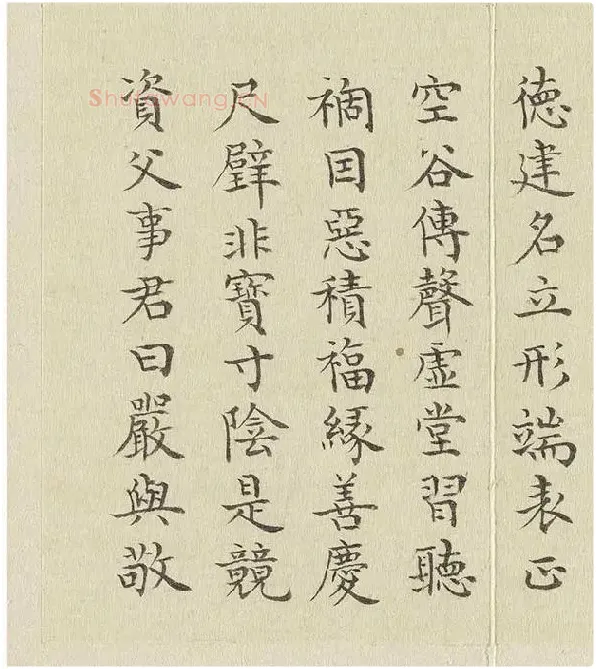 德建名立形端表正
空谷傳聲虛堂習聽
禍因惡積福緣善慶
尺璧非寶寸陰是競
資父事君曰嚴與敬